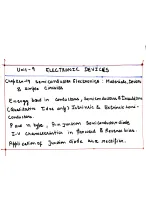 Unit-9 ELECTRONIC DEVICES
Chapter-14 Semiconductor Electronics : Materials, Devices
& Simple Circuits
Energy band in conductors, Semiconductors & Insulators
(Qualitative Idea only) Intrinsic & Extrinsic Semi-
Conductors.
P and n type, P-n junction Semiconductor diode
I-V characteristics in forward & Reverse bias.
Application of Junction diode as a rectifier.